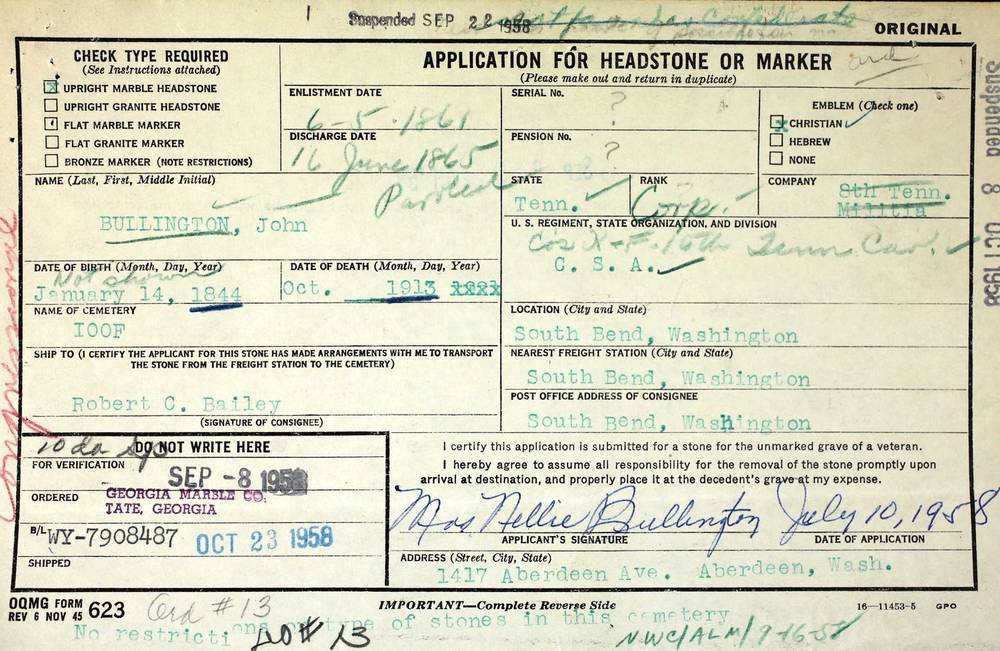 Suspended SEP 22 1958
ORIGINAL
CHECK TYPE REQUIRED
(See Instructions attached)
X UPRIGHT MARBLE HEADSTONE
UPRIGHT GRANITE HEADSTONE
FLAT MARBLE MARKER
FLAT GRANITE MARKER
BRONZE MARKER (NOTE RESTRICTIONS)
APPLICATION FOR HEADSTONE OR MARKER
(Please make out and return in duplicate)
ENLISTMENT DATE
6-5-1861
DISCHARGE DATE
16 June 1865
Paroled
SERIAL No.
?
PENSION No.
?
EMBLEM (Check one)
X CHRISTIAN ✓
HEBREW
NONE
NAME (Last, First, Middle Initial)
BULLINGTON, John
STATE
Tenn.
RANK
Corp.
COMPANY
8th Tenn.
Militia
U. S. REGIMENT, STATE ORGANIZATION, AND DIVISION
Cos X-F. 16th Tenn Cav.
C. S. A.
DATE OF BIRTH (Month, Day, Year)
Not shown
January 14, 1844
DATE OF DEATH (Month, Day, Year)
Oct. 1913
NAME OF CEMETERY
IOOF
LOCATION (City and State)
South Bend, Washington
SHIP TO (I CERTIFY THE APPLICANT FOR THIS STONE HAS MADE ARRANGEMENTS WITH ME TO TRANSPORT
THE STONE FROM THE FREIGHT STATION TO THE CEMETERY)
Robert C. Bailey
(SIGNATURE OF CONSIGNEE)
NEAREST FREIGHT STATION (City and State)
South Bend, Washington
POST OFFICE ADDRESS OF CONSIGNEE
South Bend, Washington
DO NOT WRITE HERE
FOR VERIFICATION
SEP -8 1958
ORDERED
GEORGIA MARBLE CO.
TATE, GEORGIA
B/L WY-7908487
OCT 23 1958
SHIPPED
I certify this application is submitted for a stone for the unmarked grave of a veteran.
I hereby agree to assume all responsibility for the removal of the stone promptly upon
arrival at destination, and properly place it at the decedent's grave at my expense.
Mrs Nellie Bullington July 10, 1958
APPLICANT'S SIGNATURE
DATE OF APPLICATION
ADDRESS (Street, City, State)
1417 Aberdeen Ave. Aberdeen, Wash.
OQMG FORM
REV 6 NOV 45 623
Ord #13
IMPORTANT—Complete Reverse Side
16—11453-5 GPO
No restrictions on type of stones in this cemetery
DO# 13
NWC/ALM/9-16-58
Congressional
Suspended 8 OCT 1958